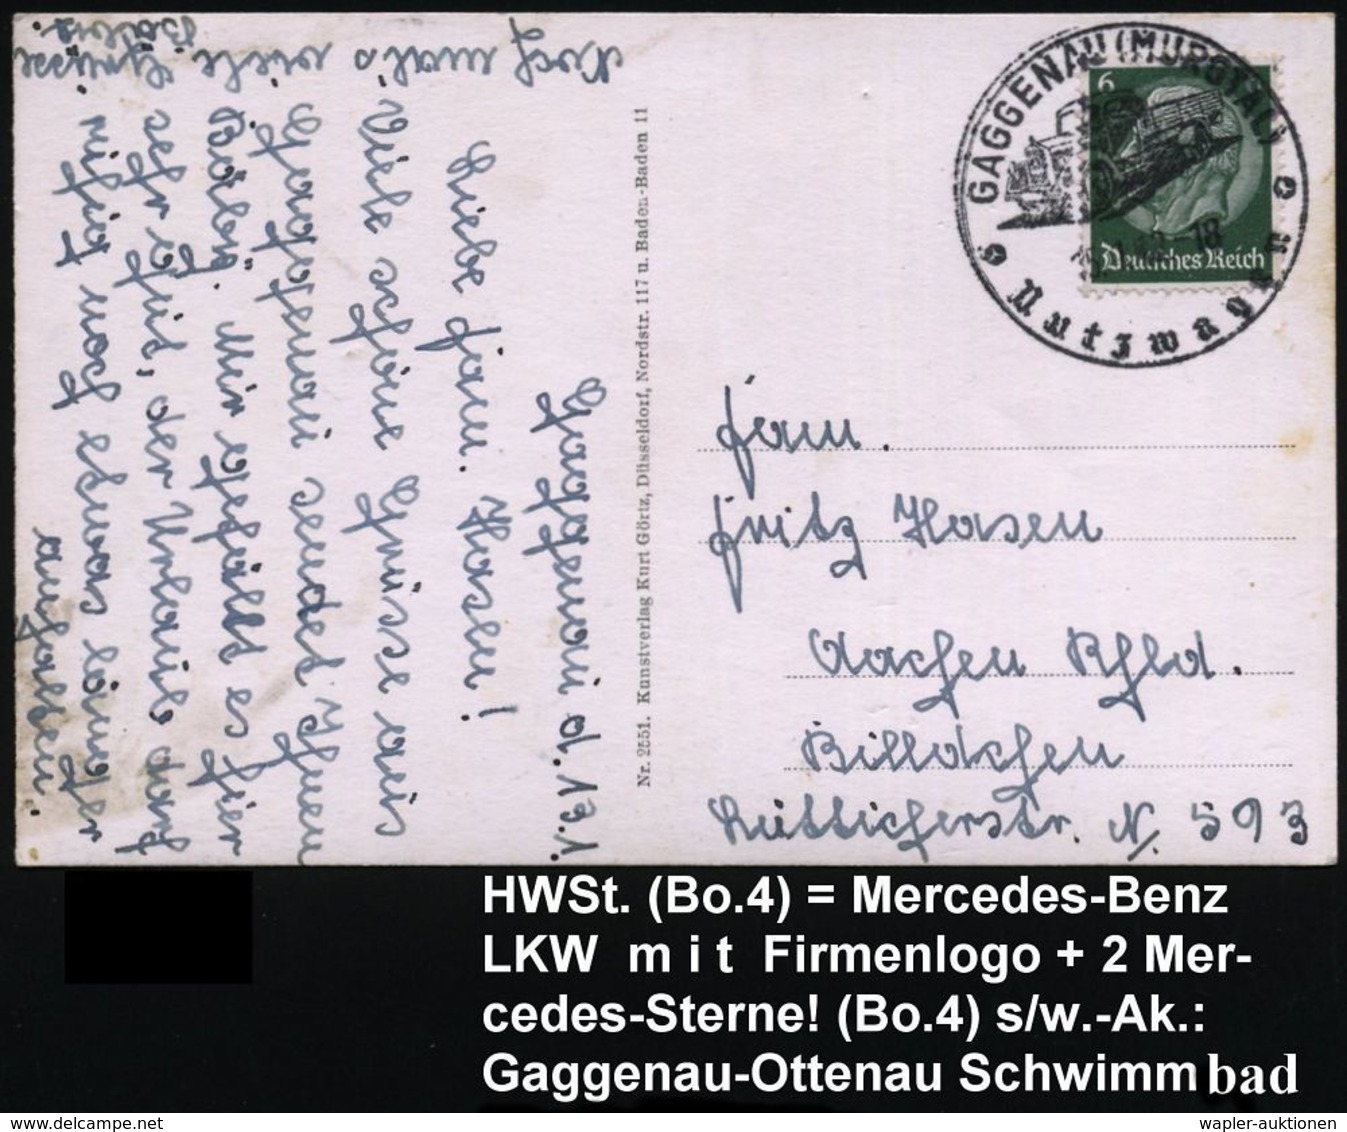 GAGGENAU (MURGTAL)
Nutzwagen
6
Deutsches Reich
Noch mals viele Grüsse
Gaggenau d. 13.1.
Liebe Fam. Hasen!
Viele schöne Grüsse aus
Gaggenau sendet Ihnen
Bäbiz. Mir gefällt es hier
sehr gut, der Urlaub darf
ruhig noch etwas länger
anhalten.
Nr. 2551. Kunstverlag Kurt Görtz, Düsseldorf, Nordstr. 117 u. Baden-Baden 11
Fam.
Fritz Hasen
Aachen Rhld.
Billdchen
Lütticherstr. N. 593
HWSt. (Bo.4) = Mercedes-Benz
LKW m i t Firmenlogo + 2 Mer-
cedes-Sterne! (Bo.4) s/w.-Ak.:
Gaggenau-Ottenau Schwimmbad
wapler-auktionen